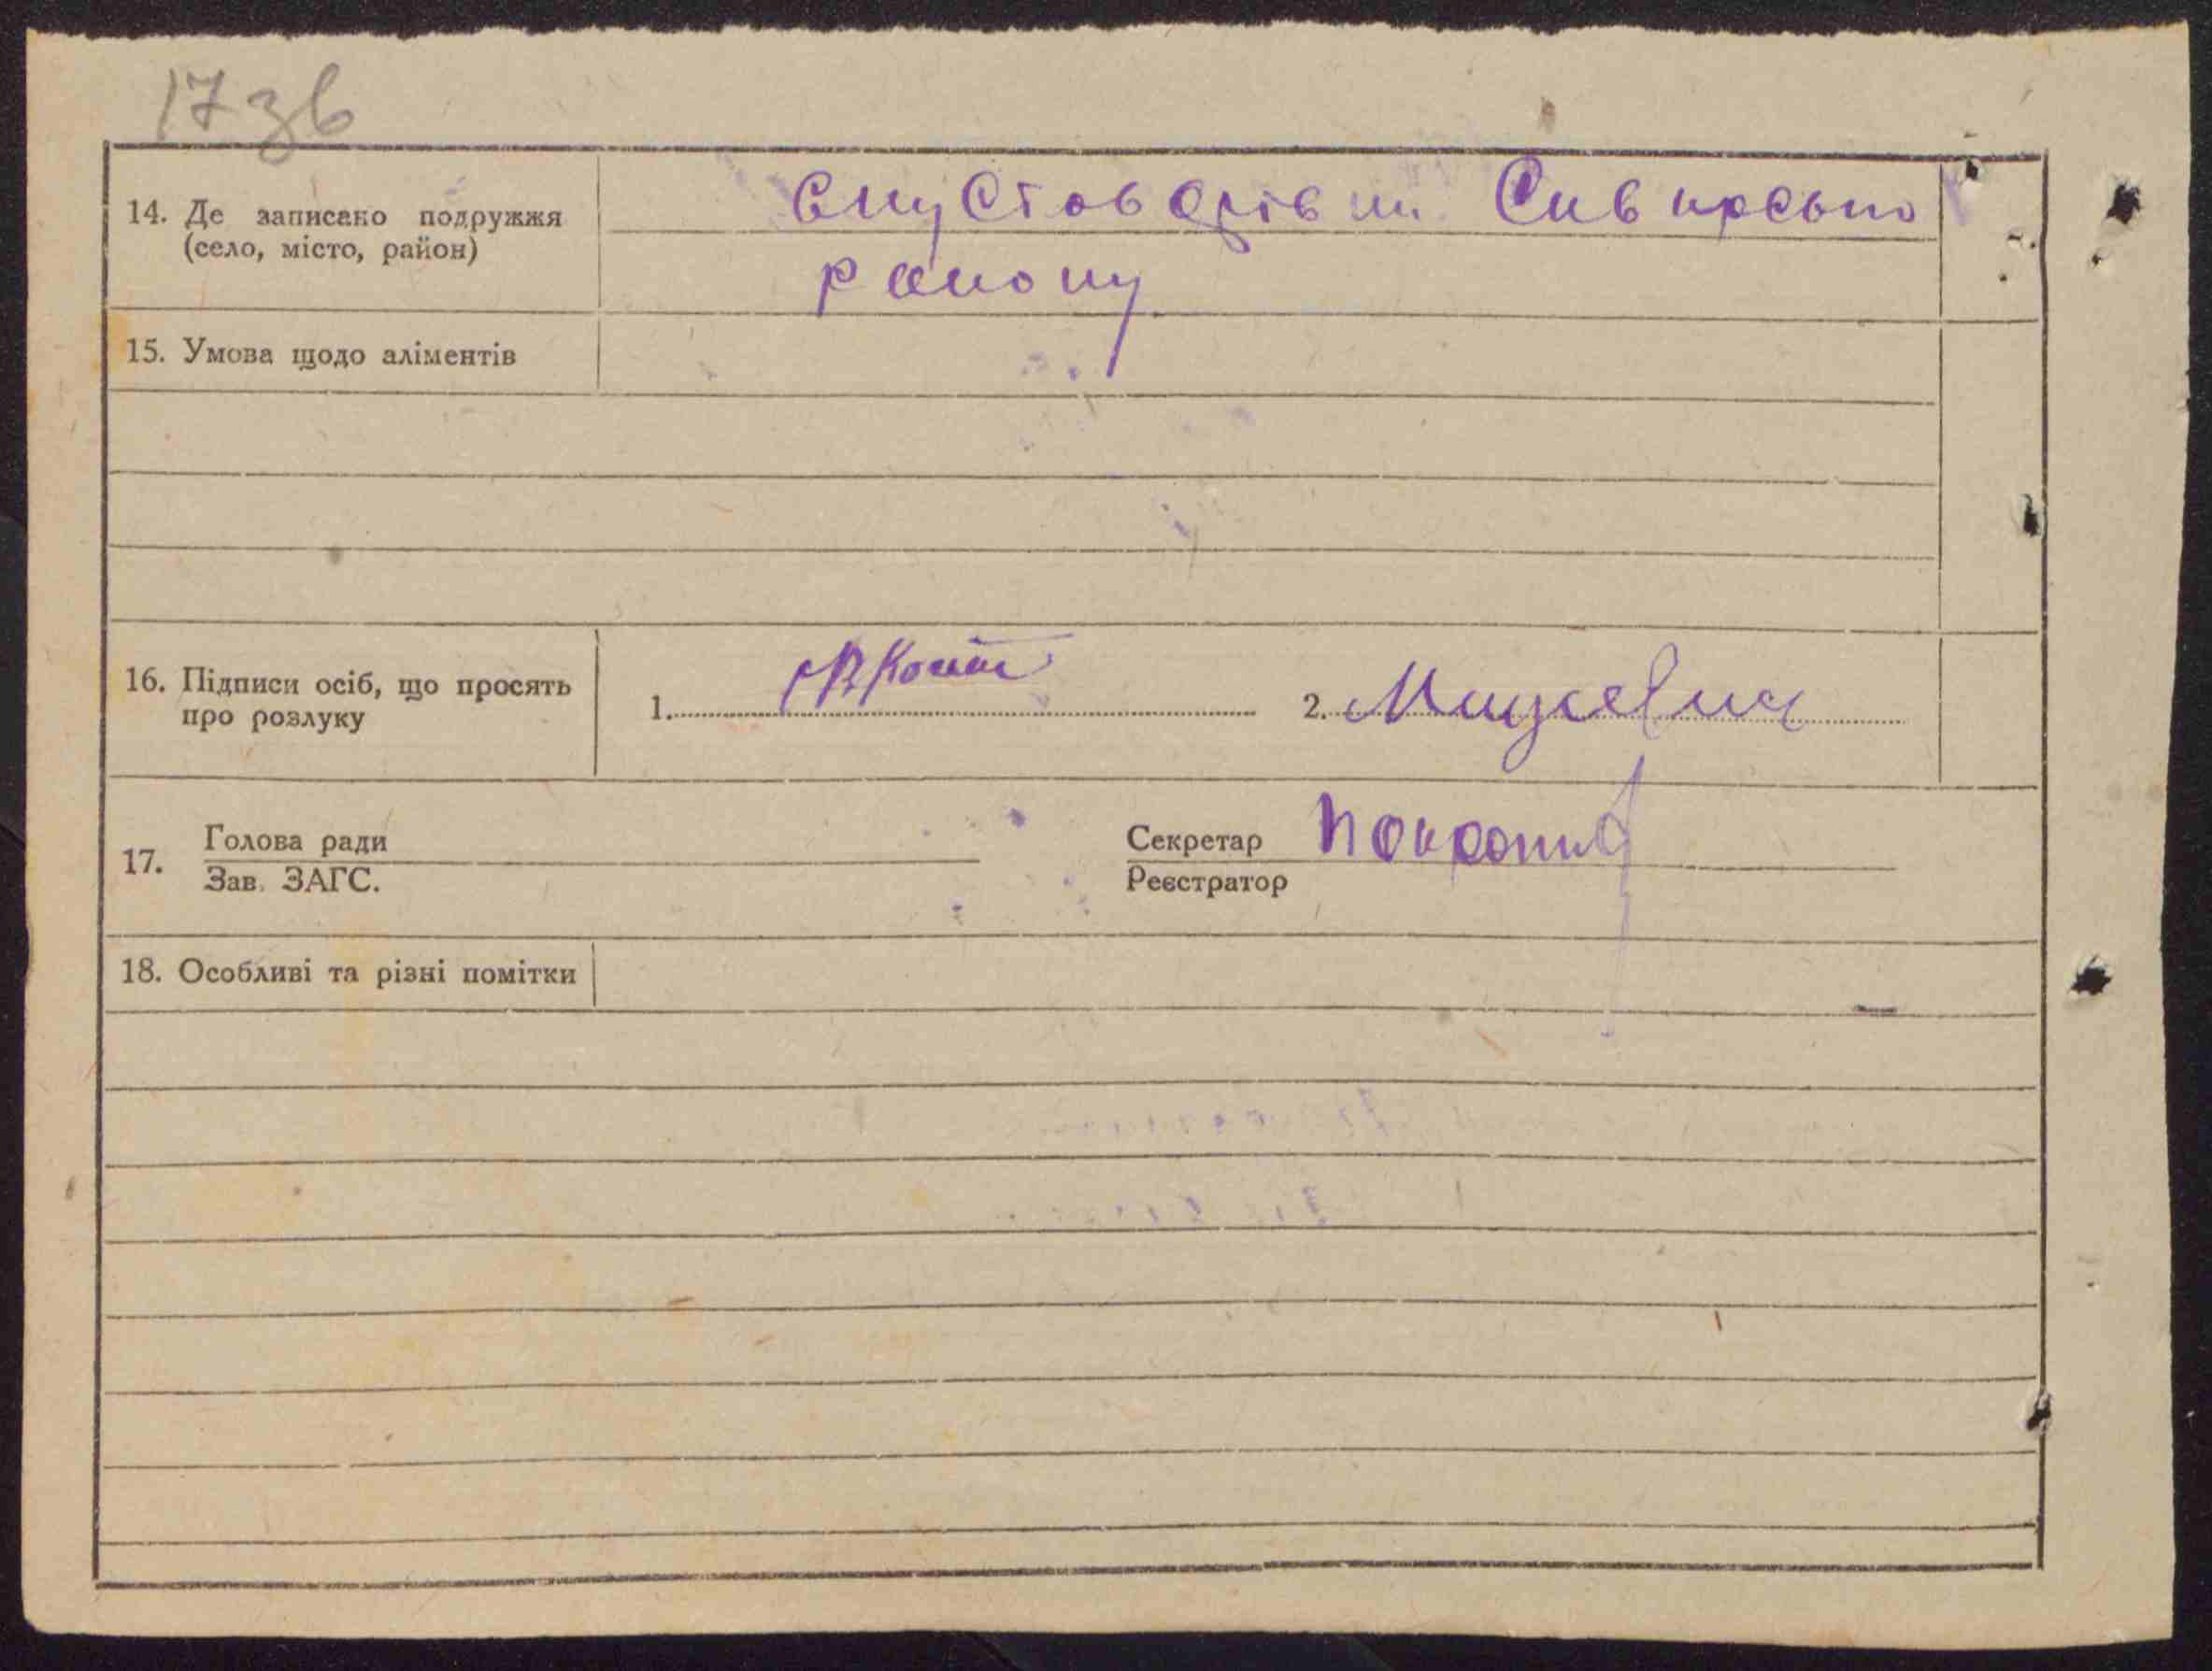 17 зв
14. Де записано подружжя
(село, місто, район)
району
15. Умова щодо аліментів
16. Підписи осіб, що просять
про розлуку
1.
2. Мацкевич
17.
Голова ради
Зав. ЗАГС.
Секретар
Реєстратор
18. Особливі та різні помітки